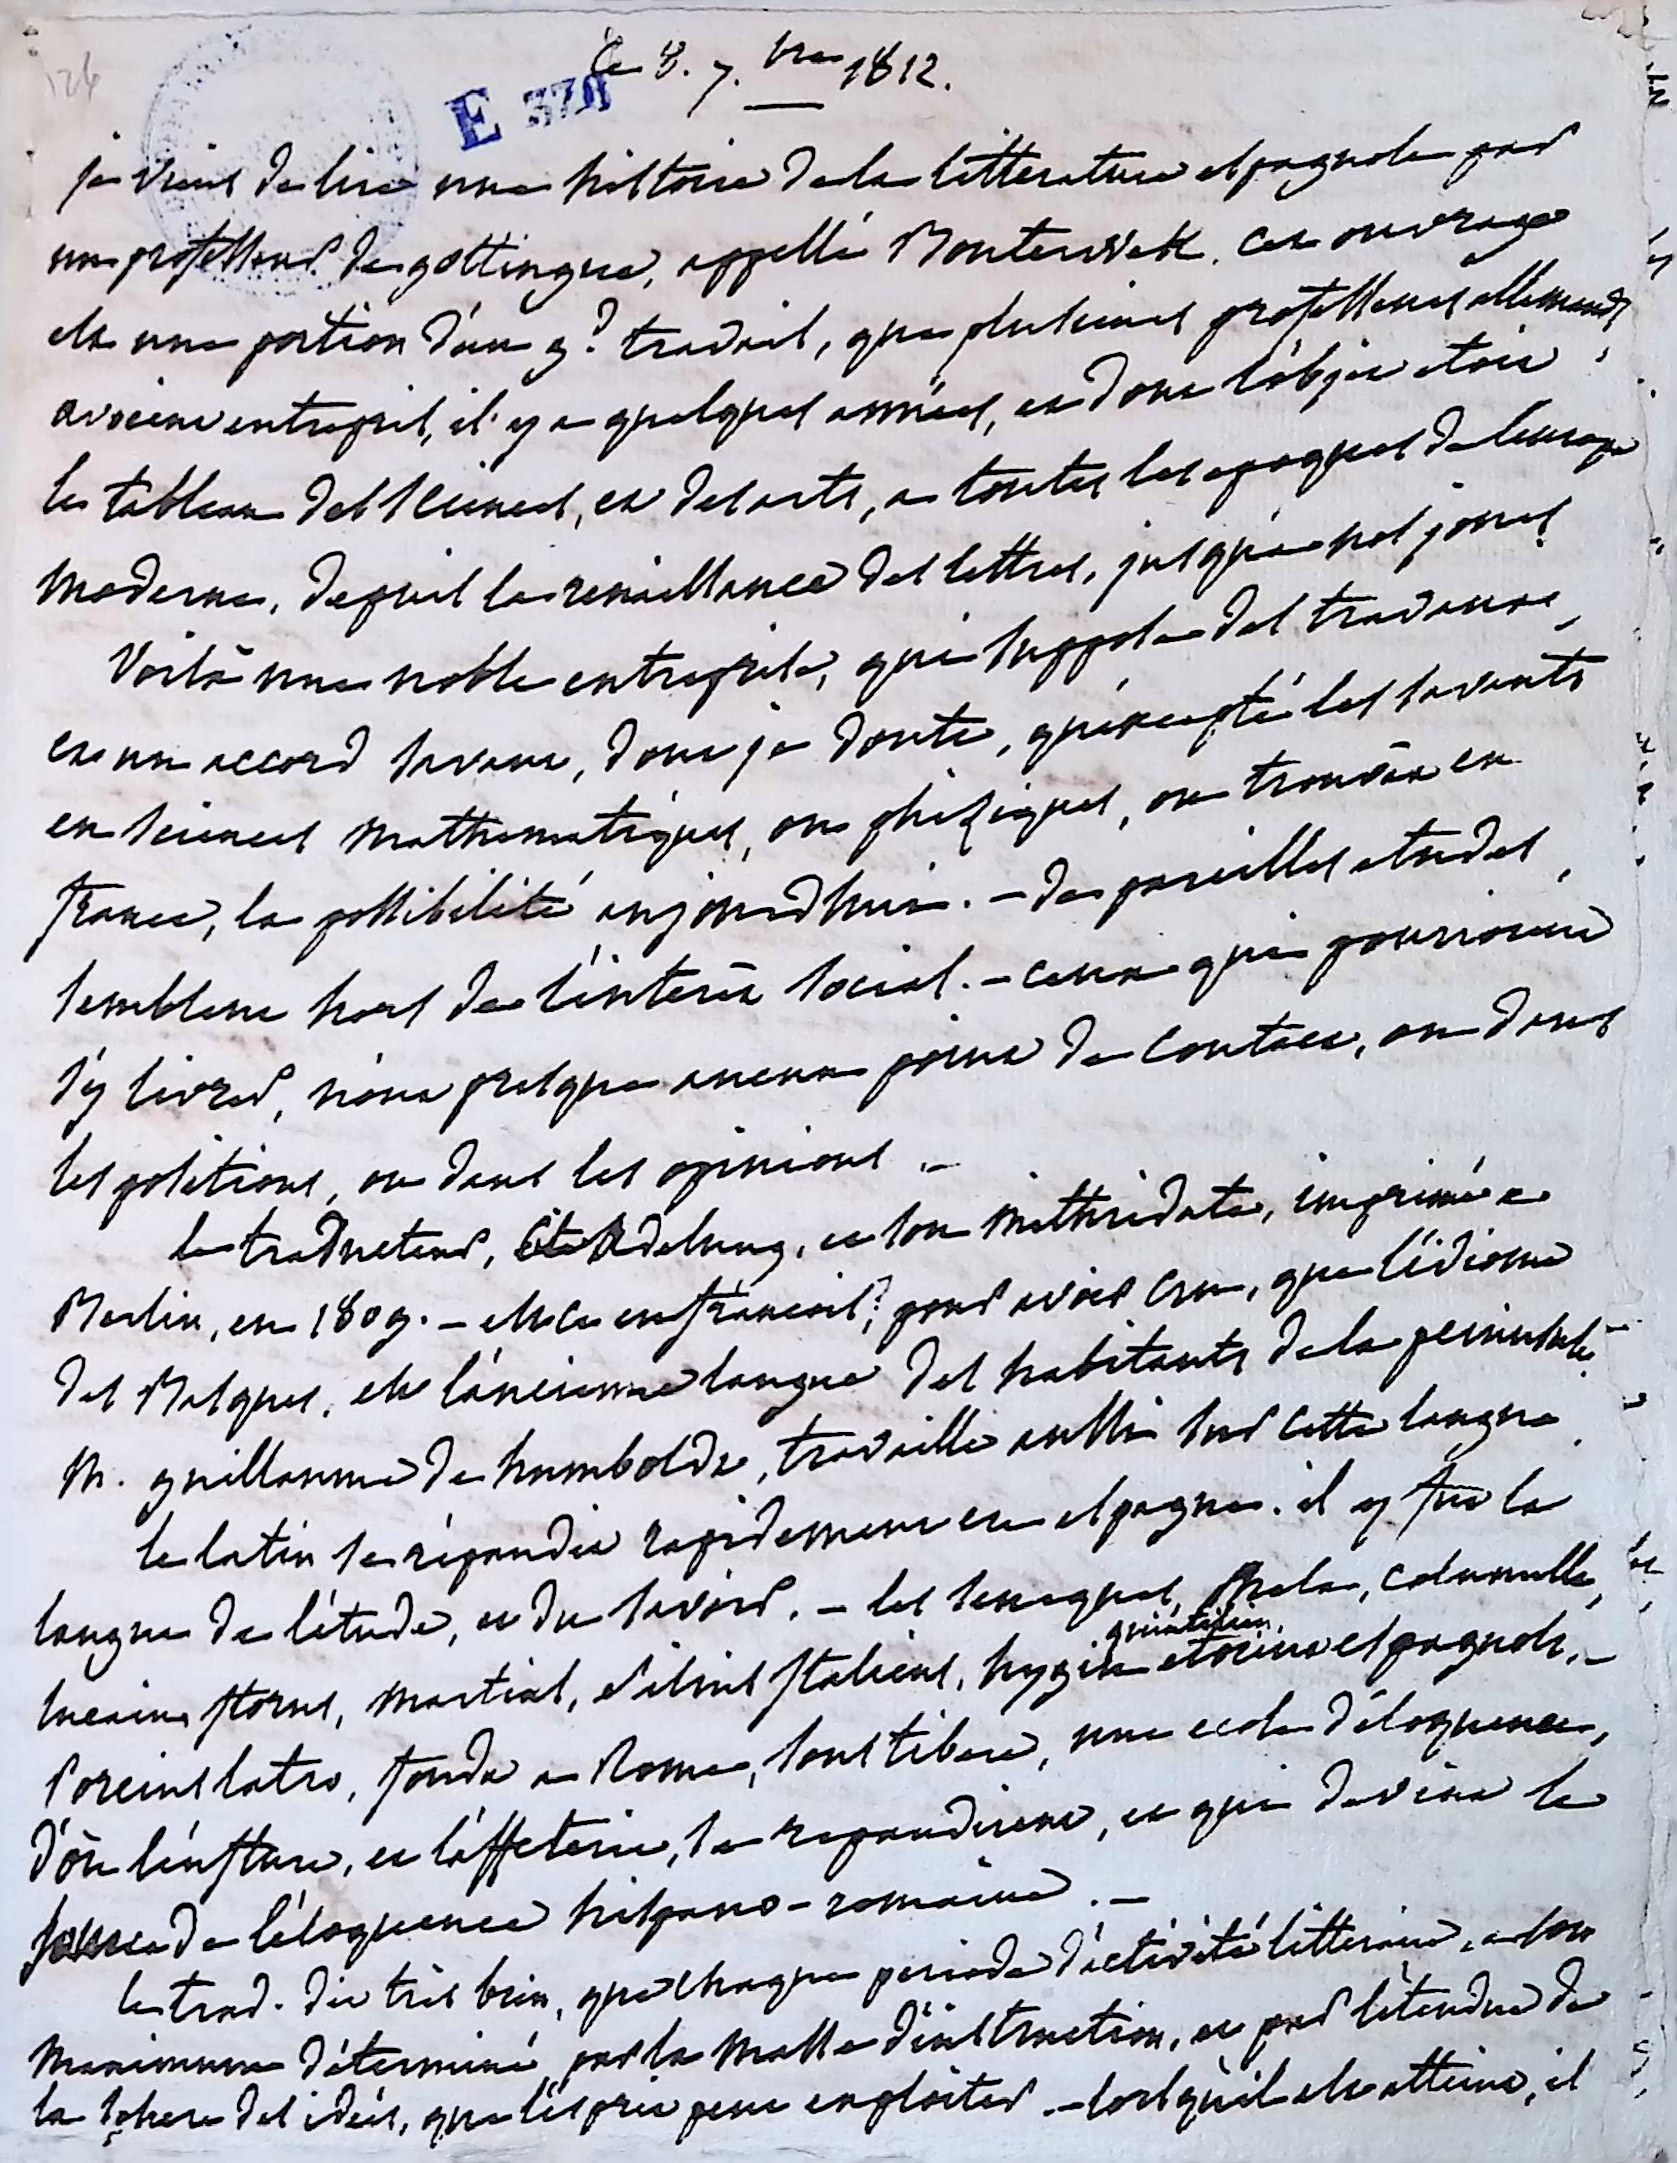 126
Ce 8. 7.bre 1812.
E 378
je viens de lire une histoire de la litterature espagnole par
un professeur de gottingue, appellé Bouterwek. cet ouvrage
est une portion d'un gd travail, que plusieurs professeurs allemands,
avoient entrepris, il y a quelques années, et dont l'objet etoit
le tableau des sciences, et des arts, a toutes les epoques de l'europe
moderne, depuis la renaissance des lettres, jusqu'a nos jours.
Voilà une noble entreprise, qui suppose des travaux,
et un accord savant, dont je doute, qu'excepté les savants
en sciences mathematiques, ou phisiques, on trouvât en
france, la possibilité aujourdhui. - de pareilles etudes,
semblent hors de l'interêt social. - ceux qui pourroient
s'y livrer, n'ont presque aucun point de contact, ou dans
les positions, ou dans les opinions. -
le traducteur, cite Adelung, et son mithridate, imprimé a
Berlin, en 1809. - est ce en françois? pour avoir cru, que l'idiome
des Basques, est l'ancienne langue des habitants de la peninsule. -
M. guillaume de humboldt, travaille aussi sur cette langue.
le latin se répandit rapidement en espagne. il y fut la
langue de l'étude, et du savoir. - les seneques, Mela, columelle,
quintilien,
lucain, florus, martial, silius italicus, hygin etoient espagnols. -
Porcius latro, fonda a Rome, sous tibere, une ecole d'éloquence,
d'où l'enflure, et l'affeterie, se repandirent, et qui devint le
de l'éloquence hispano-romaine. -
le trad. dit très bien, que chaque periode d'activité litteraire, a son
maximum déterminé par la masse d'instruction, et par l'étendue de
la sphere des idées, que l'esprit peut exploiter. - lorsqu'il est atteint, il